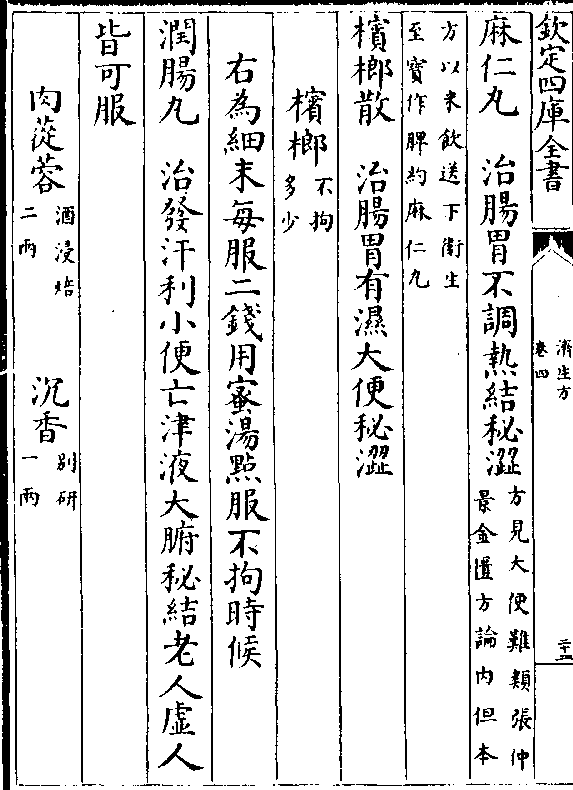 欽定四庫全書
濟生方
卷四
麻仁丸　治腸胃不調熱結秘澀方見大便難類張仲
景金匱方論内但本
方以米飲送下衛生
至寶作脾約麻仁丸
檳榔散　治腸胃有濕大便秘澀
檳榔不拘
多少
右為細末每服二錢用蜜湯點服不拘時候
潤腸丸　治發汗利小便亡津液大腑秘結老人虛人
皆可服
肉蓯蓉酒浸焙
二兩
沉香别研
一兩